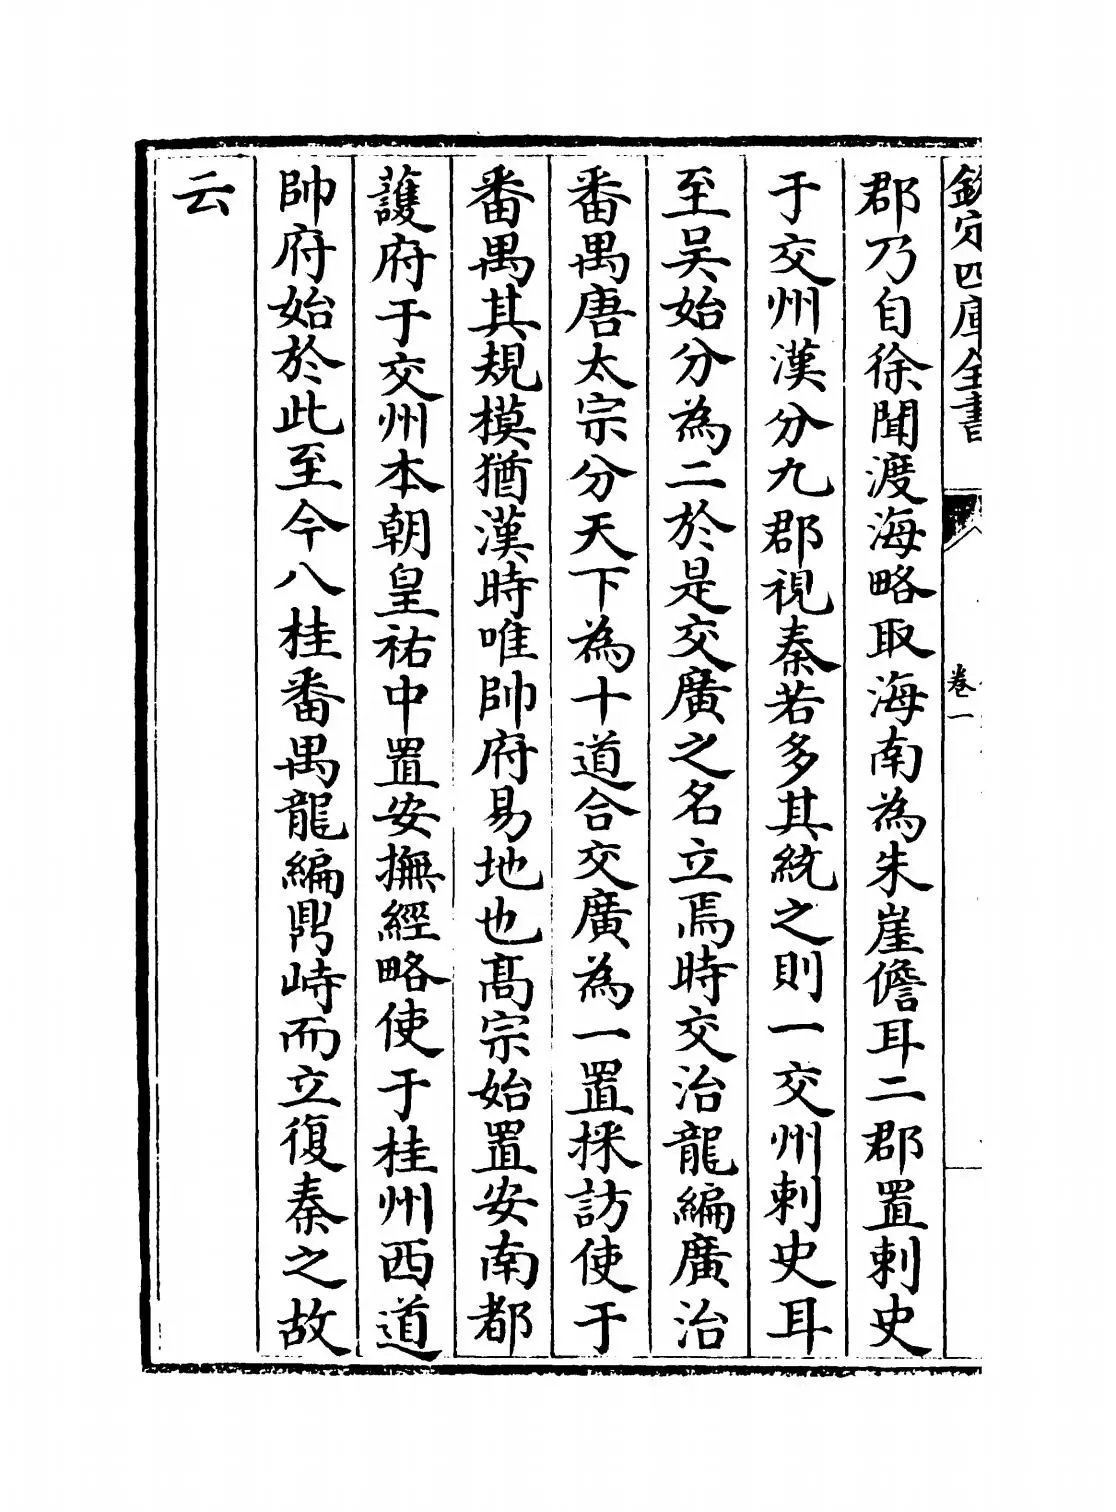 欽定四庫全書
卷一
郡乃自徐聞渡海略取海南為朱崖儋耳二郡置刺史
于交州漢分九郡視秦若多其統之則一交州刺史耳
至吳始分為二於是交廣之名立焉時交治龍編廣治
番禺唐太宗分天下為十道合交廣為一置採訪使于
番禺其規模猶漢時唯帥府易地也髙宗始置安南都
護府于交州本朝皇祐中置安撫經略使于桂州西道
帥府始於此至今八桂番禺龍編鼎峙而立復秦之故
云